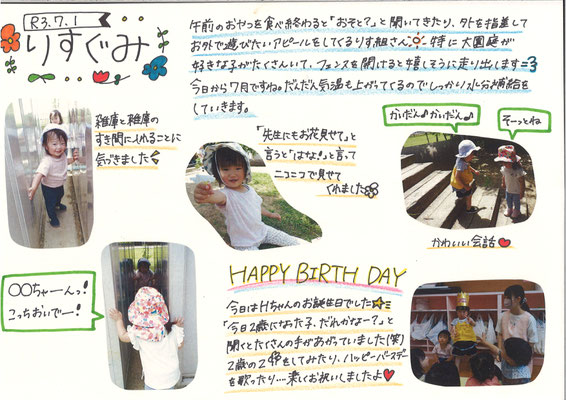 R3.7.1
りすぐみ
午前のおやつを食べ終わると「おそと?」と聞いてきたり、外を指差して
お外で遊びたいアピールをしてくるりす組さん 特に大園庭が
好きな子がたくさんいて、フェンスを開けると嬉しそうに走り出します
今日から7月ですね。だんだん気温も上がってくるのでしっかり水分補給を
していきます。
雑庫と雑庫の
すき間に入れることに
気づきました
「先生にもお花見せて」と
言うと「はな!」と言って
ニコニコで見せて
くれました
かいだん♪かいだん♪
そーっとね
かわいい会話
○○ちゃーんっ!
こっちおいでー!
HAPPY BIRTH DAY
今日はHちゃんのお誕生日でした
「今日2歳になった子、だれかなー?」と
聞くとたくさんの手があがっていました(笑)
2歳の2をしてみたり、ハッピーバースデー
を歌ったり…楽しくお祝いしましたよ